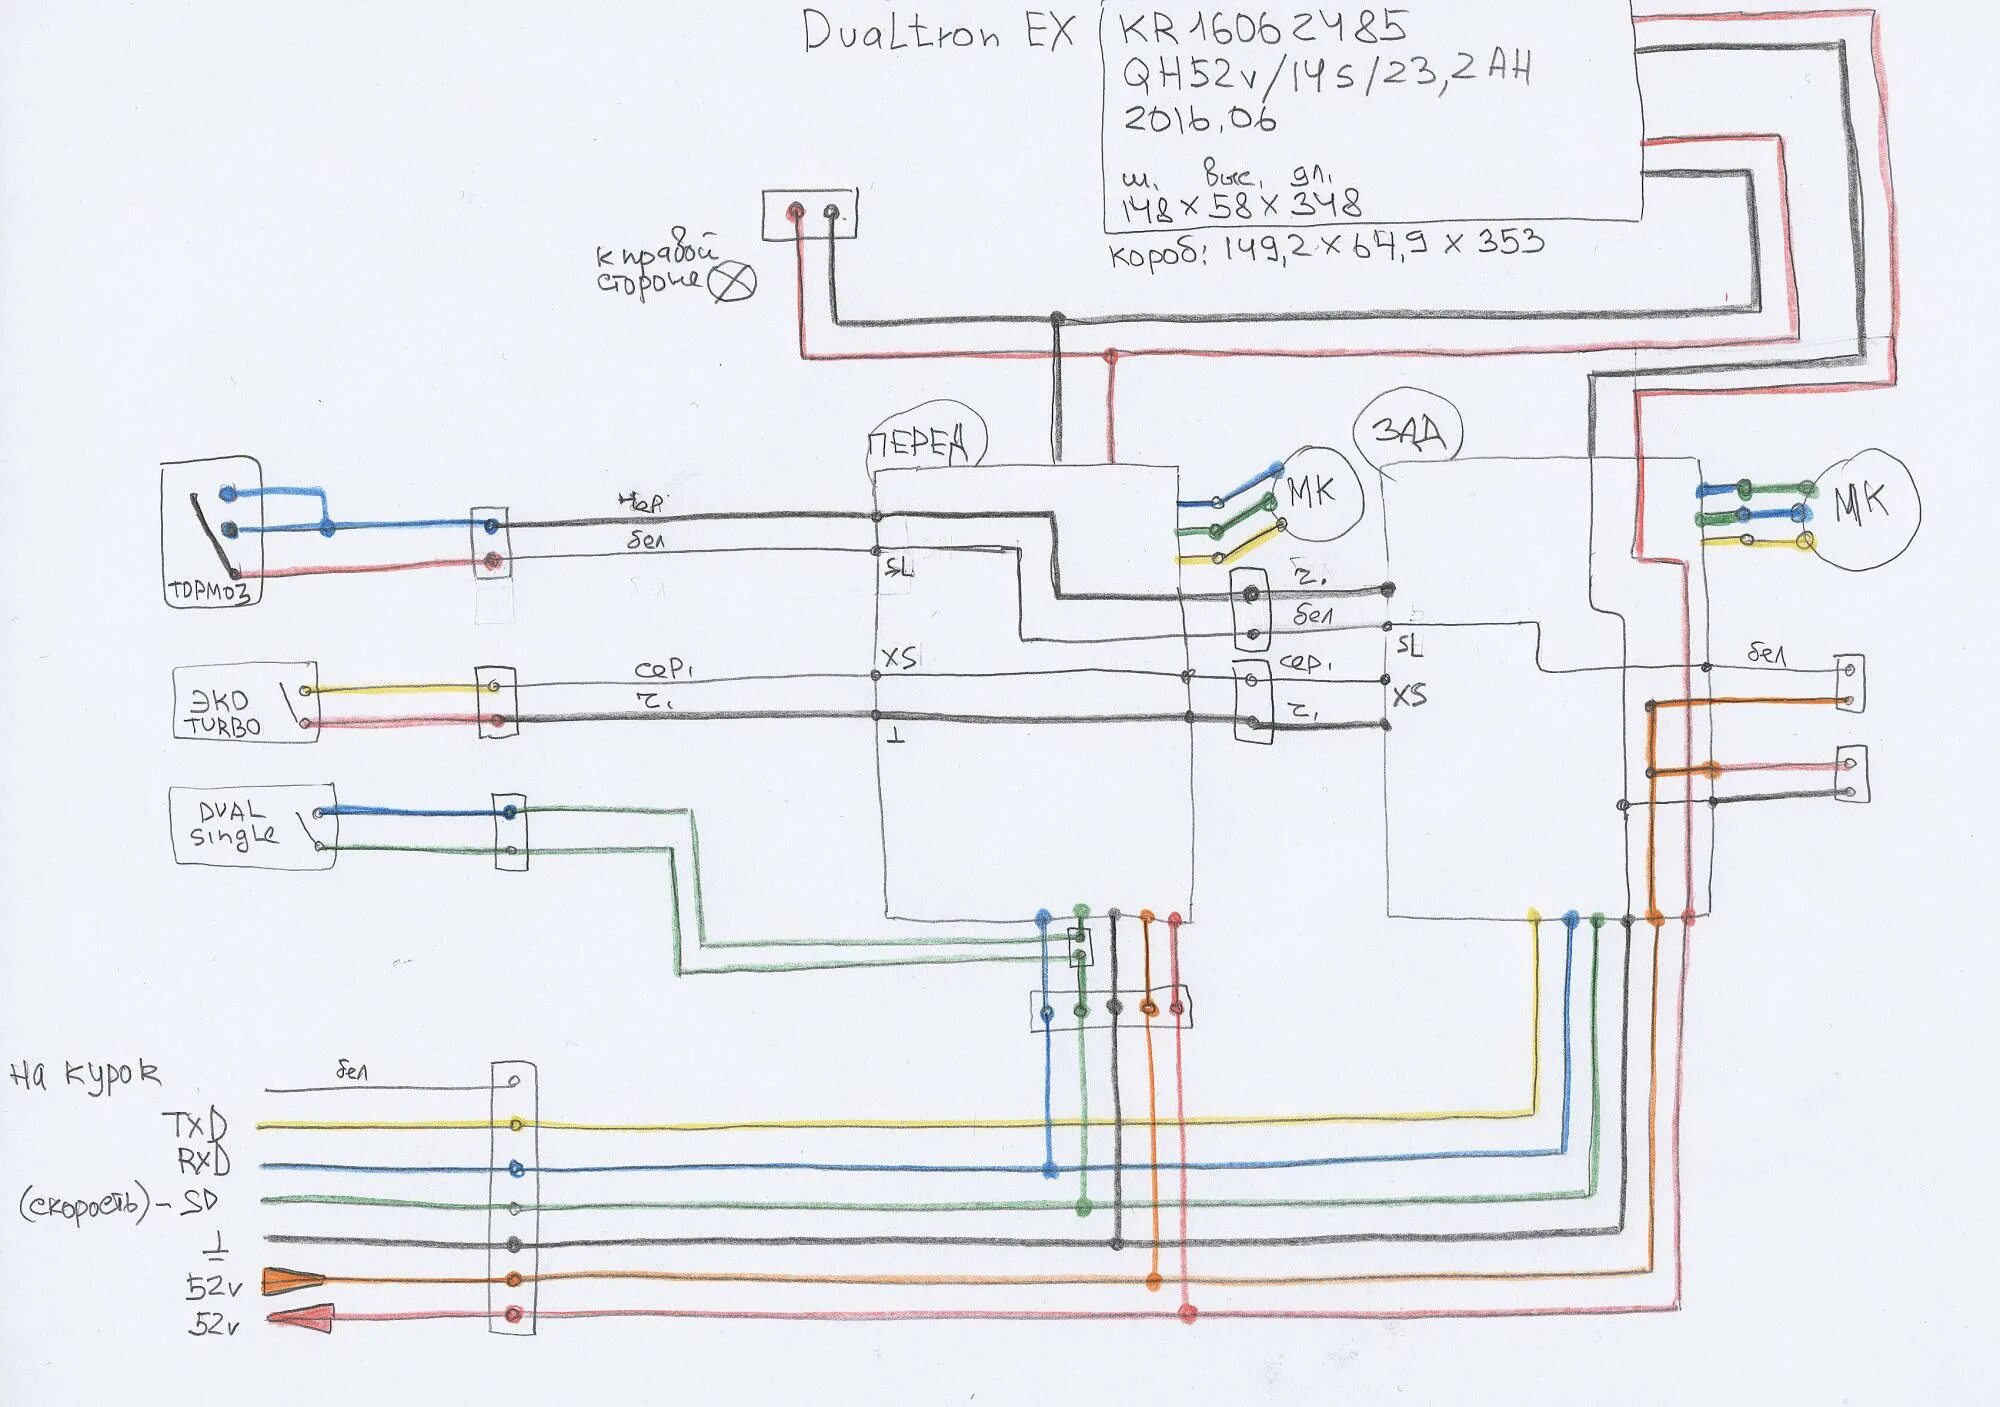 Dualtron EX
KR16062485
QH52v/14s/23,2AH
2016,06
ш. выс. дл.
148 x 58 x 348
короб: 149,2 x 64,9 x 353
к правой
стороне
ПЕРЕД
ЗАД
МК
МК
ТОРМОЗ
чер.
бел
SL
ч.
бел
SL
ЭКО
TURBO
сер.
ч.
XS
⊥
сер.
ч.
XS
бел
DUAL
single
На курок
бел
TXD
RXD
(скорость) - SD
⊥
52v
52v